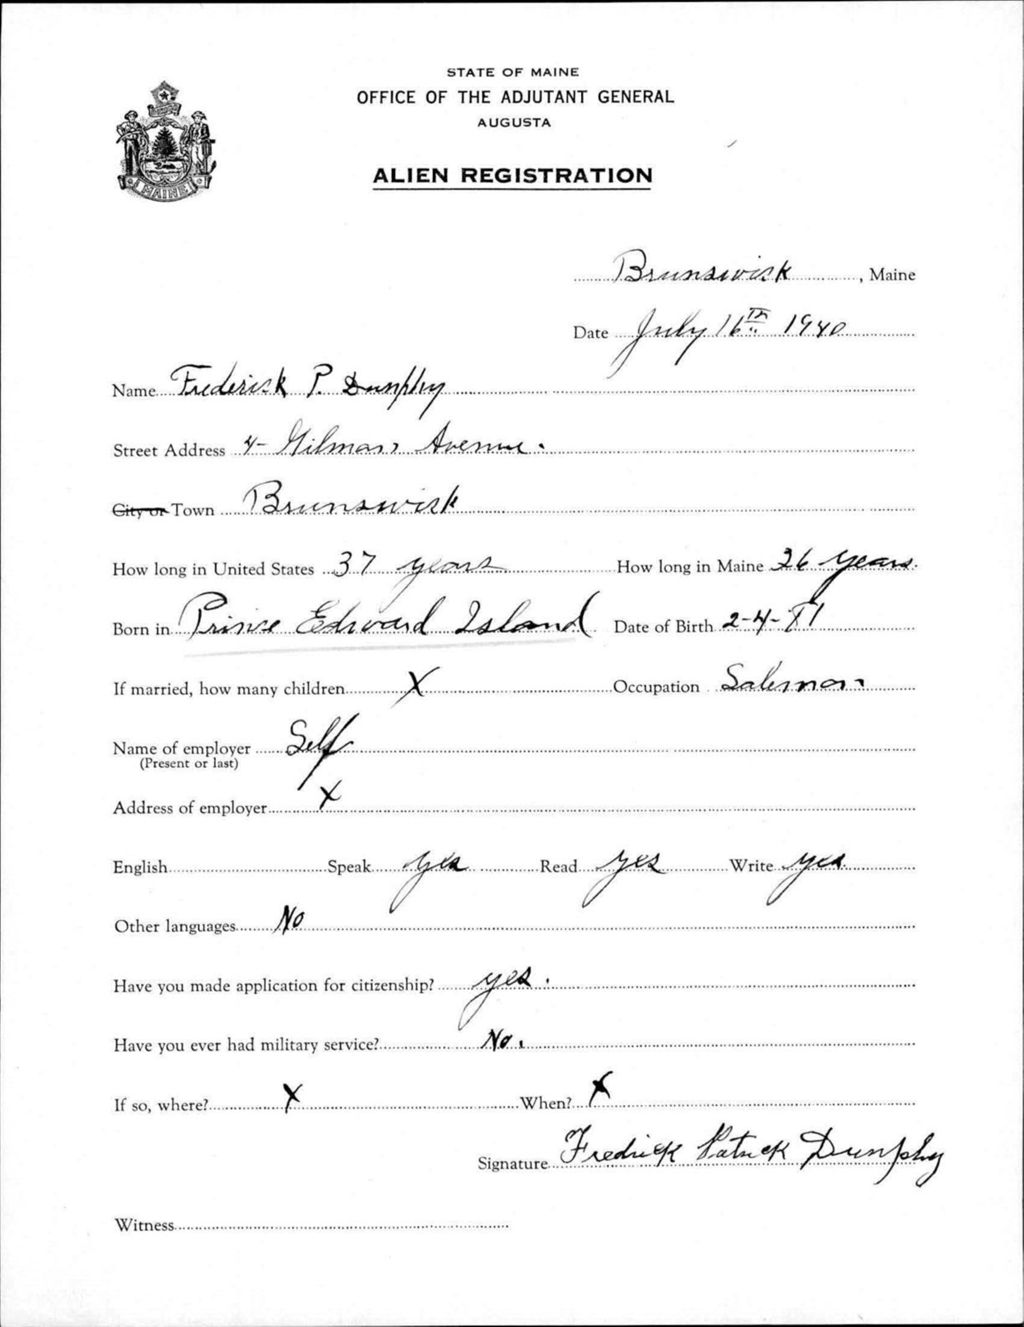 STATE OF MAINE
OFFICE OF THE ADJUTANT GENERAL
AUGUSTA
ALIEN REGISTRATION
MAINE
Brunswick, Maine
Date July 16th 1940
Name Frederick P. Dunphy
Street Address 4- Gilman Avenue.
City or Town Brunswick
How long in United States 37 years How long in Maine 26 years.
Born in Prince Edward Island Date of Birth 2-4-81
If married, how many children X Occupation Salesman
Name of employer Self
(Present or last)
Address of employer X
English Speak yes Read yes Write yes
Other languages No
Have you made application for citizenship? yes.
Have you ever had military service? No.
If so, where? X When? X
Signature Fredrick Patrick Dunphy
Witness